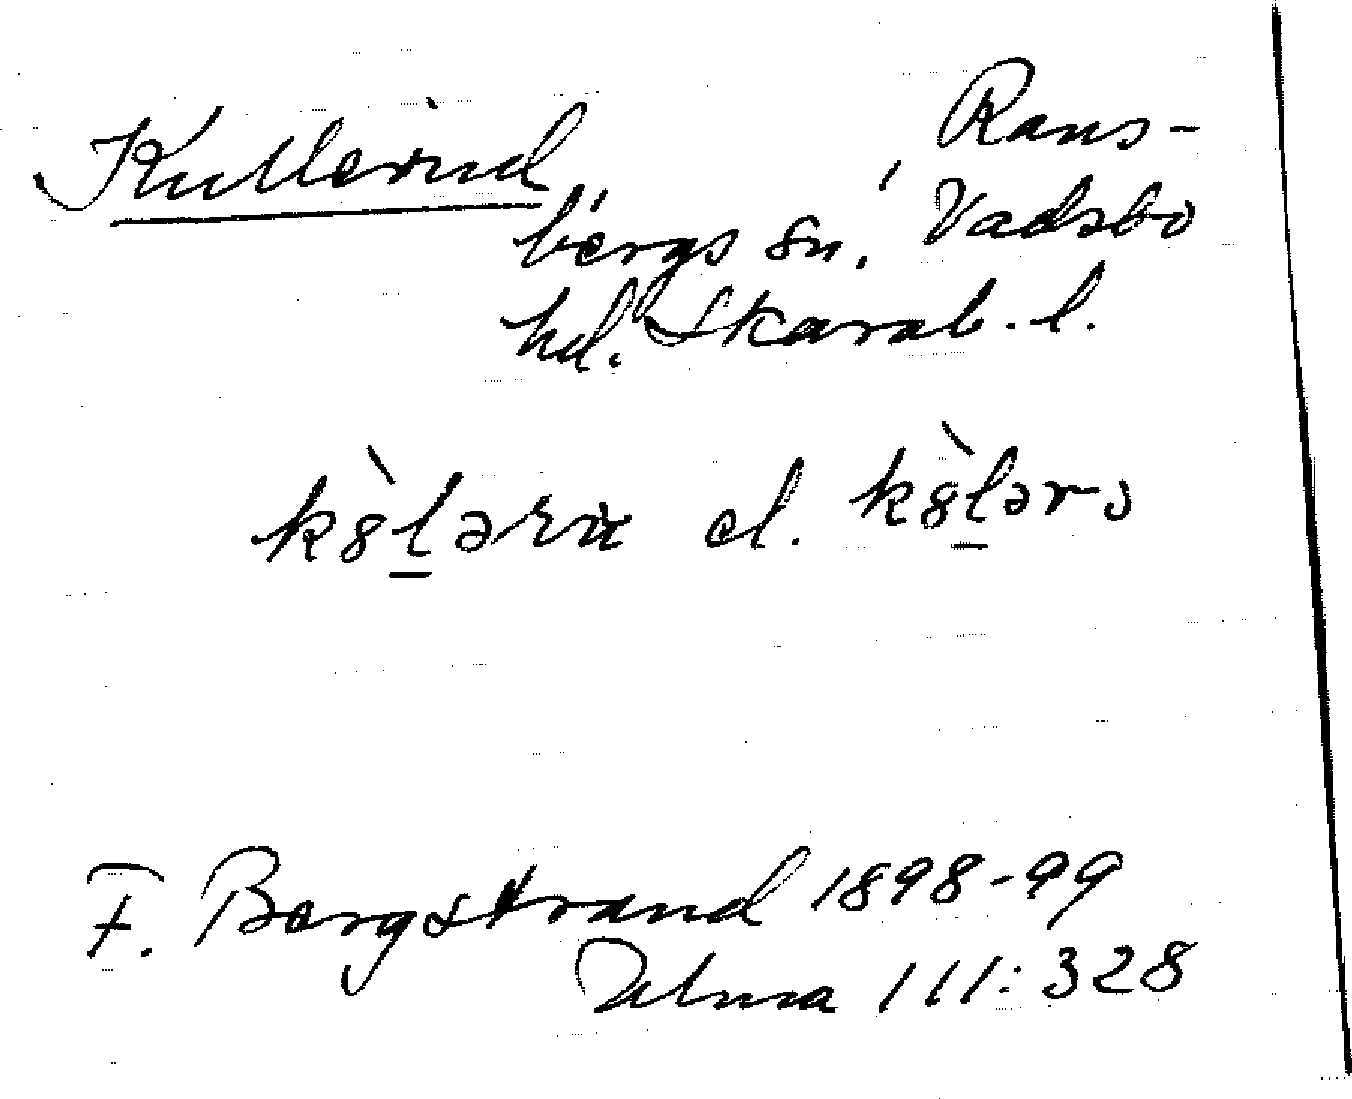 Kullerud, Rans-
bergs sn, Vadsbo
hd. Skarab. l.
kò̤lərɯ el. kò̤lərɔ
F. Bergstrand 1898-99
Ulma 111:328